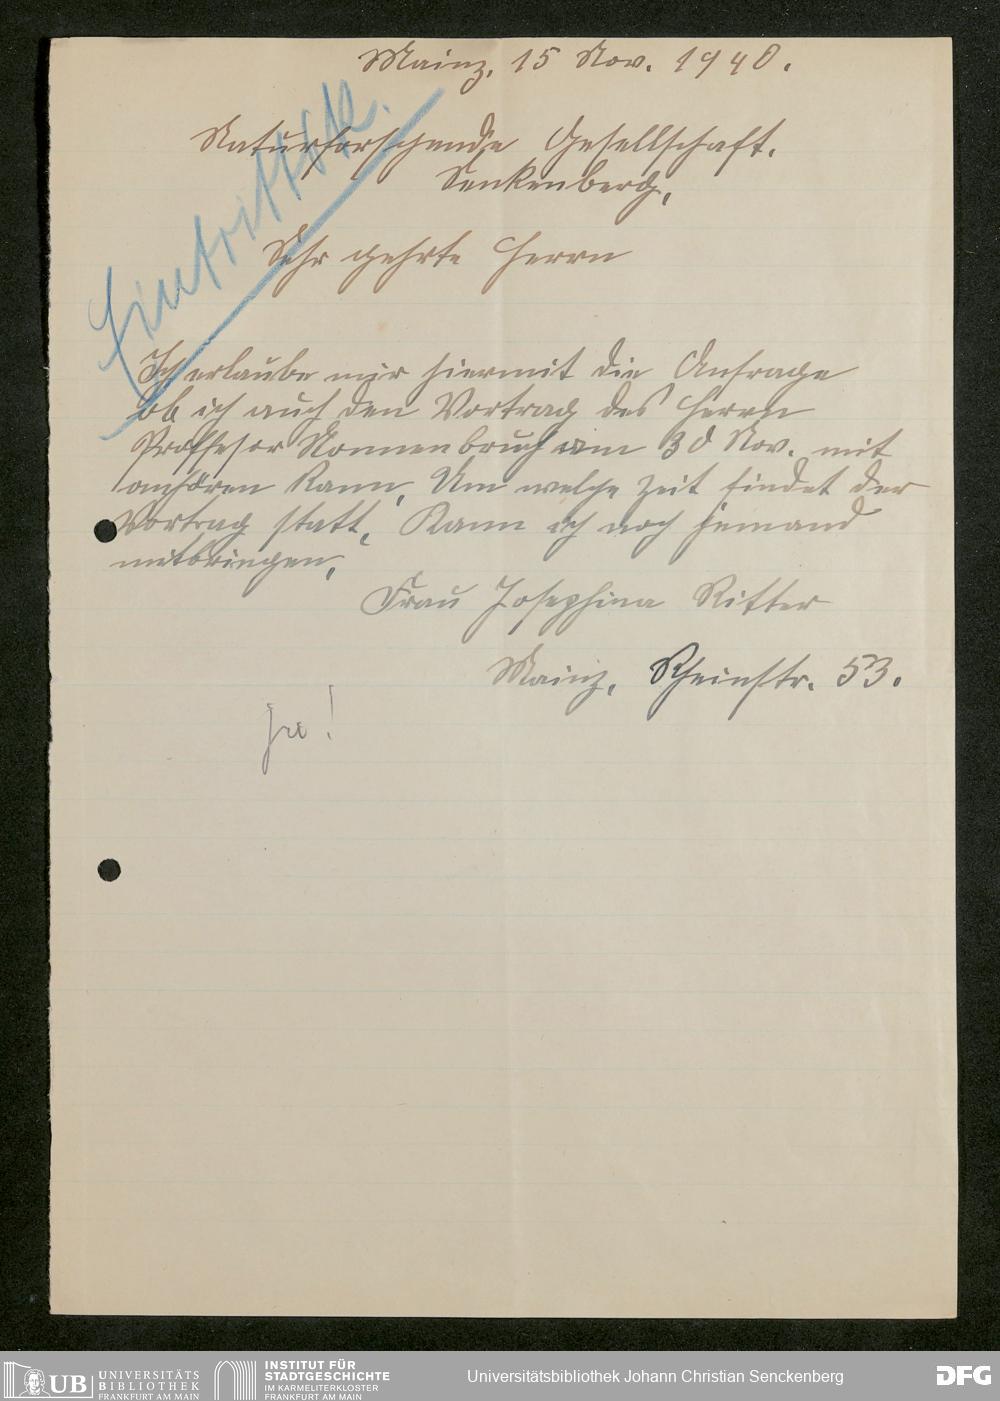 Mainz, 15 Nov. 1940.
Naturforschende Gesellschaft.
Senkenberg,
Eintrittsk.
Sehr gehrte Herrn
Ich erlaube mir hiermit die Anfrage
ob ich auch den Vortrag des Herrn
Proffesor Nonnenbruch am 30 Nov. mit
anhören kann, Um welche Zeit findet der
Vortrag statt, Kann ich noch jemand
mitbringen,
Frau Josephina Ritter
Mainz, Rheinstr. 53.
UB UNIVERSITÄTS
BIBLIOTHEK
FRANKFURT AM MAIN
INSTITUT FÜR
STADTGESCHICHTE
IM KARMELITERKLOSTER
FRANKFURT AM MAIN
Universitätsbibliothek Johann Christian Senckenberg
DFG